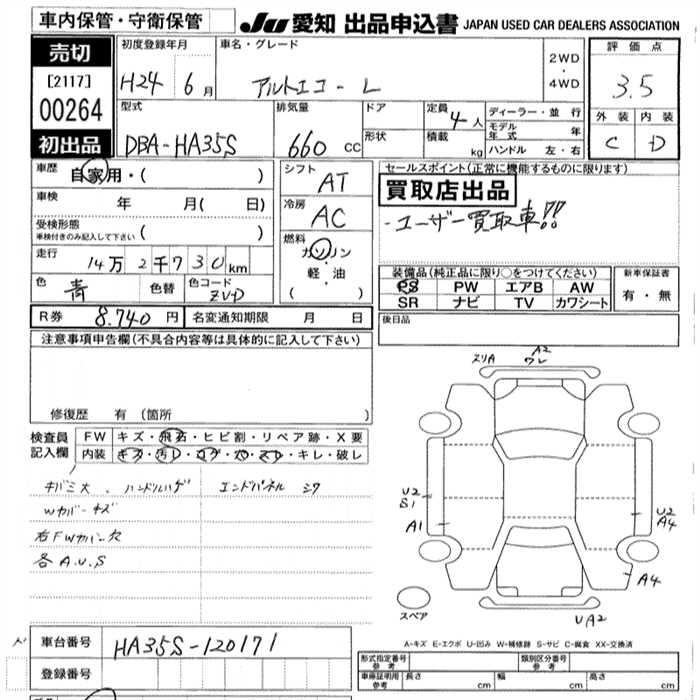 車内保管・守衛保管
JU 愛知 出品申込書 JAPAN USED CAR DEALERS ASSOCIATION
売切
[2117]
00264
初出品
初度登録年月
H24 6月
車名・グレード
アルトエコ-L
2WD
・
4WD
評価点
3.5
外装 内装
C D
型式
DBA-HA35S
排気量
660 CC
ドア
形状
定員 4人
積載 kg
ディーラー・並行
モデル年式 年
ハンドル 左・右
車歴
自家用・( )
車検
年 月( 日)
受検形態
車検付きのみ記入して下さい ( )
走行
14万2千730km
色
青
色替
色コード
ZVD
シフト
AT
冷房
AC
燃料
ガソリン
・
軽・油
( )
セールスポイント(正常に機能するものに限ります)
買取店出品
・ユーザー買取車!!
装備品(純正品に限り○をつけてください)
PS PW エアB AW
SR ナビ TV カワシート
新車保証書
有・無
R券 8,740円 名変通知期限 月 日
後日品
注意事項申告欄(不具合内容等は具体的に記入して下さい)
修復歴 有 (箇所 )
検査員
記入欄
FW キズ・飛石・ヒビ割・リペア跡・X要
内装 キズ・汚レ・コゲ・穴・スレ・キレ・破レ
キバミ大、ハンドルハゲ エンドパネル シワ
Wカバーキズ
右FWカバー欠
各A.U.S
スリA
A2
ワレ
U2
S1
A1
U2
A4
A4
UA2
スペア
A-キズ E-エクボ U-凹み W-補修跡 S-サビ C-腐食 XX-交換済
車台番号 HA35S-120171
登録番号
形式指定番号
参考
類別区分番号
参考
車庫証明用
参考
長さ cm 幅 cm 高さ cm